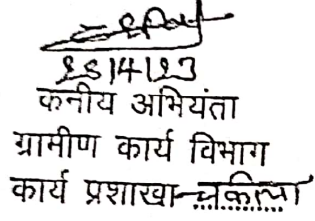 25/4/23
कनीय अभियंता
ग्रामीण कार्य विभाग
कार्य प्रशाखा-चकिया